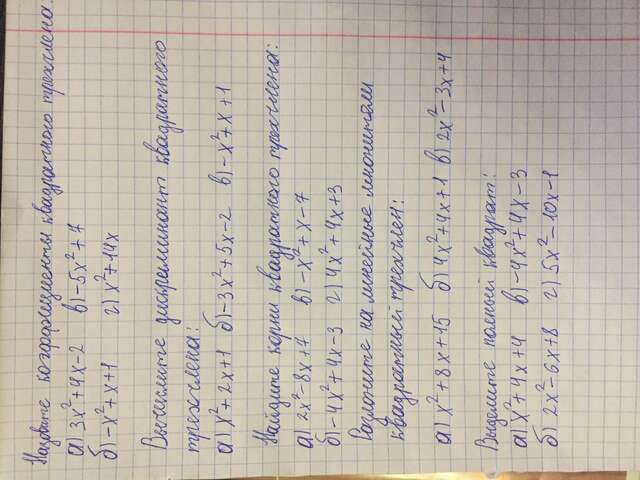 Назовите коэффициенты квадратного трехчлена:
а) 3x²+4x-2 в) -5x²+7
б) -x²+x+1 г) x²+14x
Вычислите дискриминант квадратного
трехчлена:
а) x²+2x+1 б) -3x²+5x-2 в) -x²+x+1
Найдите корни квадратного трехчлена:
а) 2x²-8x+7 в) -x²+x-7
б) -4x²+4x-3 г) 4x²+4x+3
Разложите на линейные множители
квадратный трехчлен:
а) x²+8x+15 б) 4x²+4x+1 в) 2x²-3x+4
Выделите полный квадрат:
а) x²+4x+4 в) -4x²+4x-3
б) 2x²-6x+8 г) 5x²-10x-1